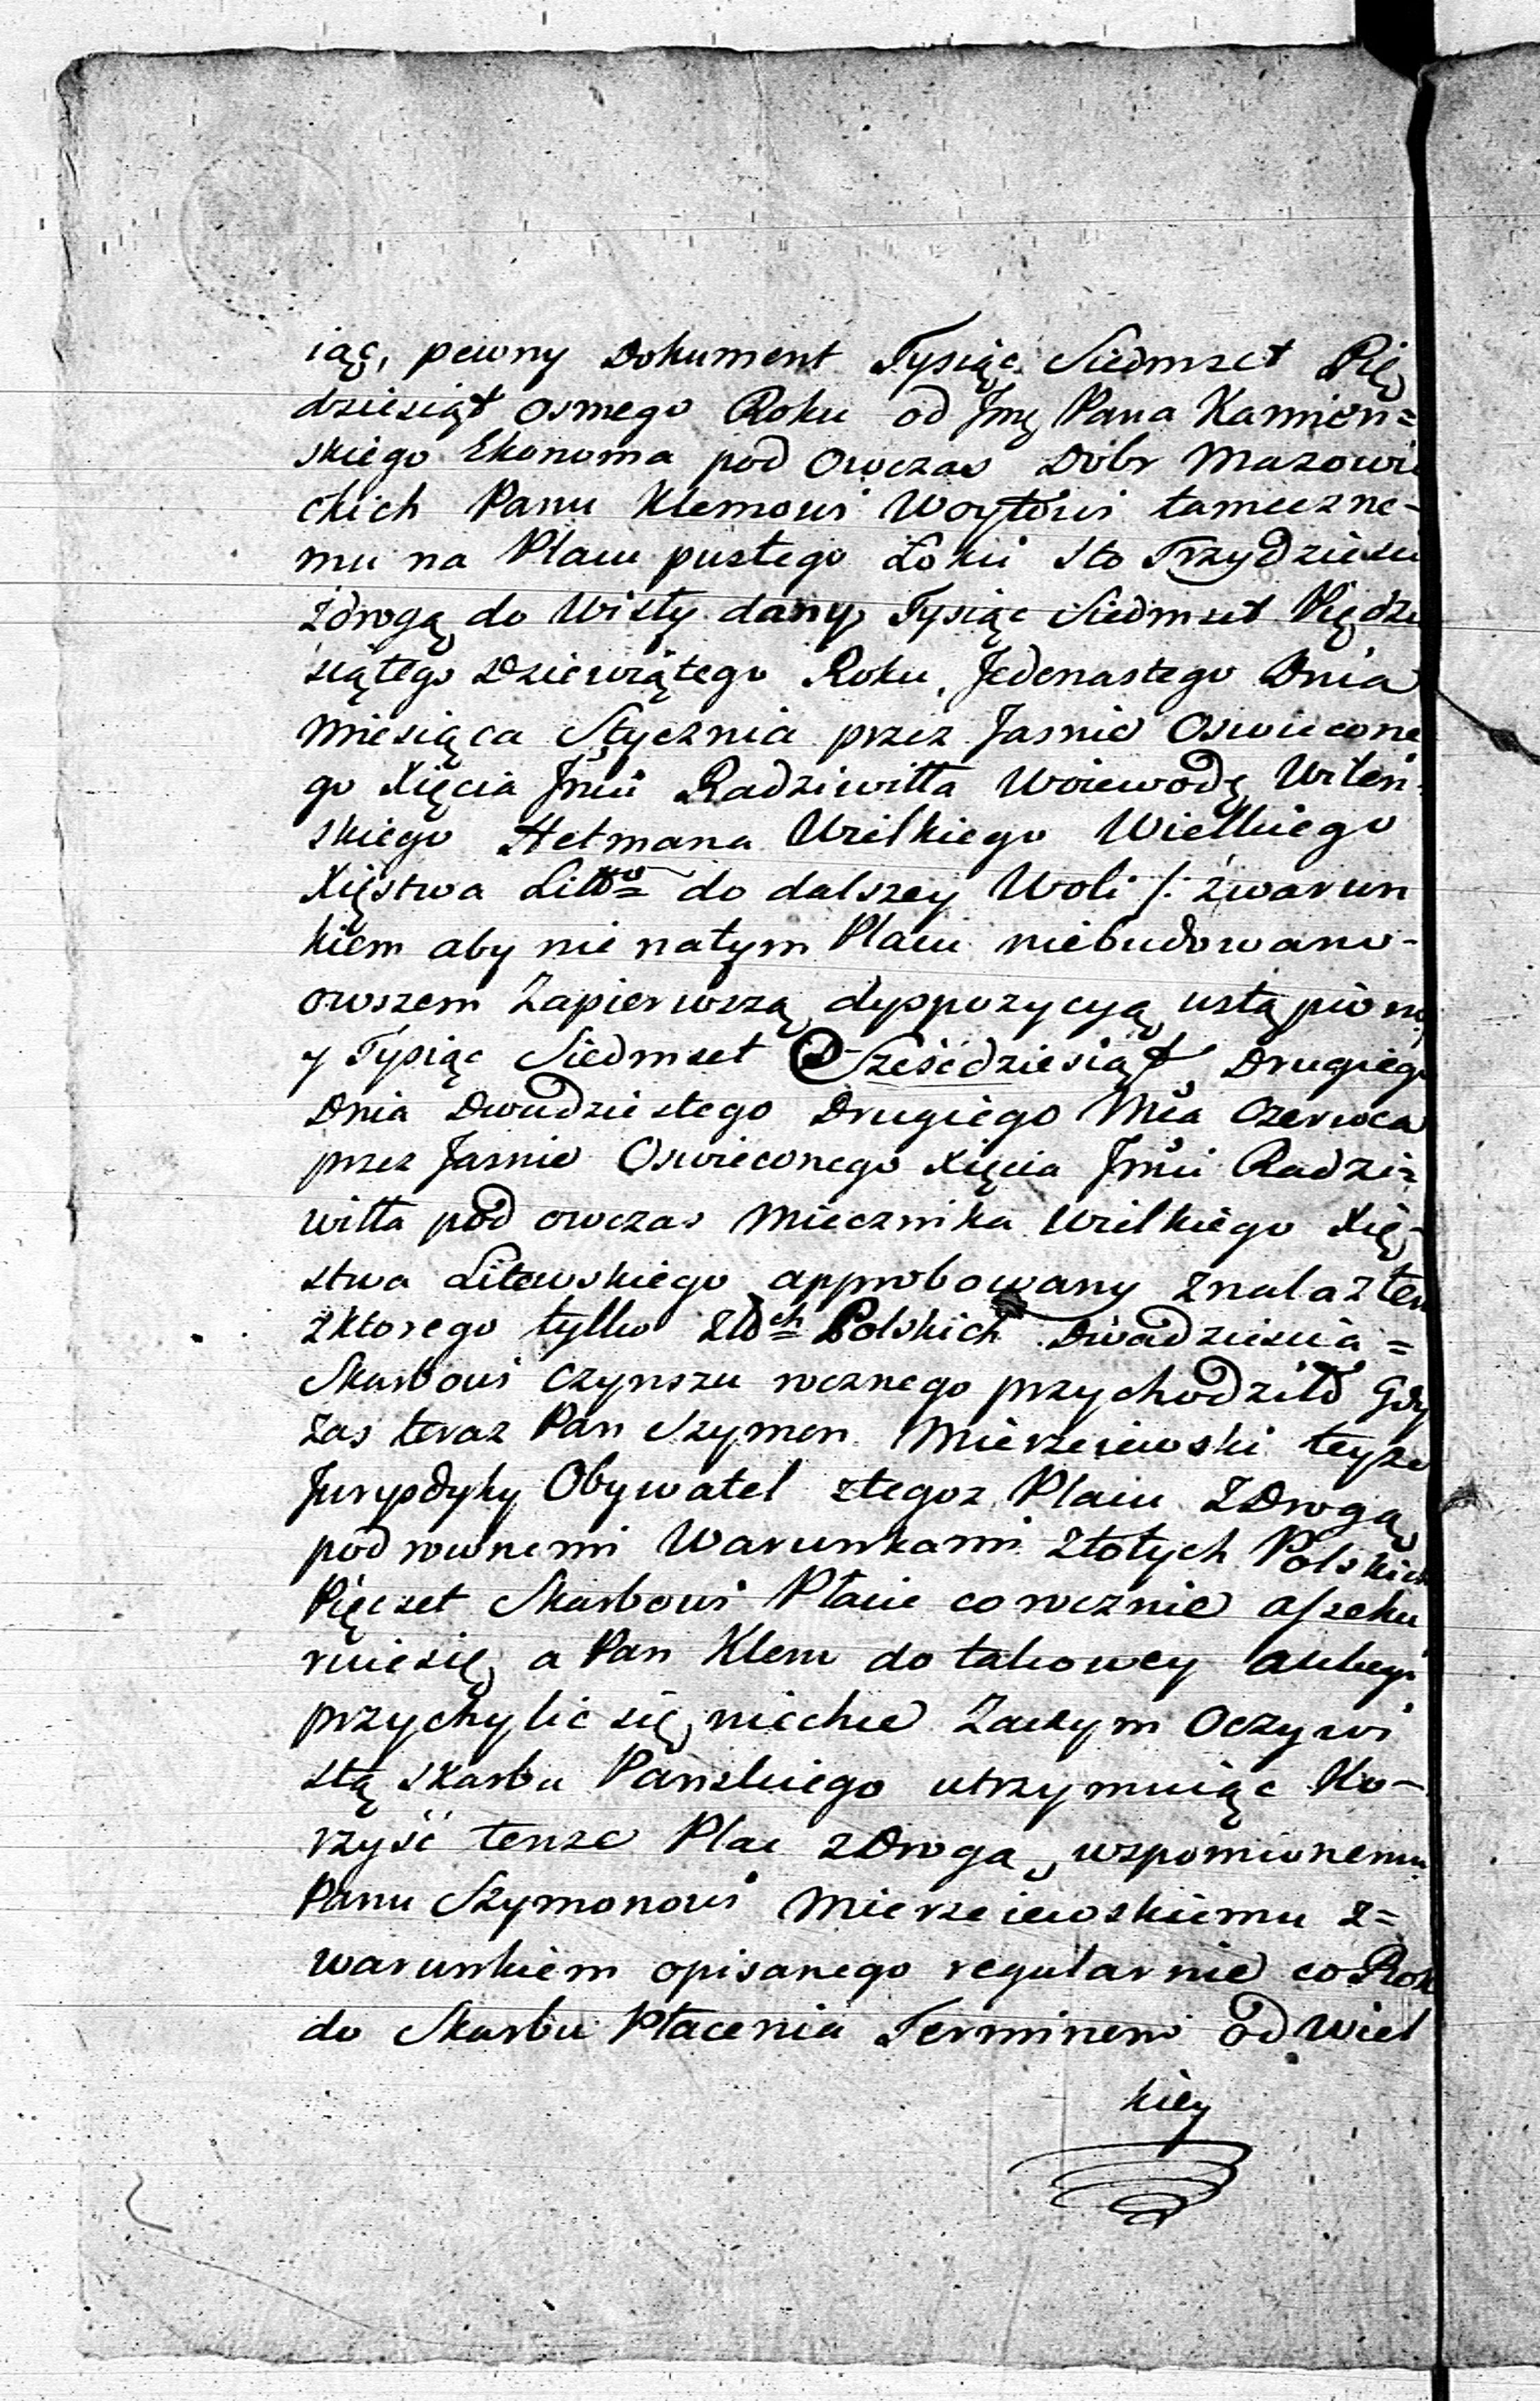 iąc, pewny Dokument Tysiąc Siedmset Pię
dziesiąt osmego Roku od Jmę Pana Kamień=
skiego Ekonoma pod Owczas Dóbr Mazowie
ckich Panu Klemowi Woytowi tameczne-
mu na Placu pustego Łokci Sto Trzydzieści
z drogą do Wisły dany Tysiąc Siedmset Pięćdzie
siątego Dziewiątego Roku, Jedenastego Dnia
Miesiąca Stycznia przez Jasnie Oswiecone
go Xięcia Jmci Radziwiłła Woiewodę Wilen-
skiego Hetmana Wielkiego Wielkiego
Xięstwa Littgo do dalszey Woli /: z warun
kiem aby nic na tym Placu niebudowano-
owszem Zapierwszą dyspozycyą ustąpiony
y Tysiąc Siedmset Sześćdziesiąt Drugiego
Dnia Dwudziestego Drugiego Mca Czerwca
przez Jasnie Oswieconego Xięcia Jmci Radzi=
wiłła pod owczas Miecznika Wielkiego Xię-
stwa Litewskiego approbowany znalazłem
z ktorego tylko Złłch Polskich Dwadziescia =
Skarbowi Czynszu rocznego przychodziło Gdy
zas teraz Pan Szymon Mierzeiewski teyże
Jurysdyky Obywatel z tegoz Placu z Drogą
pod rownemi Warunkami Złotych Polskich
Pięcset Skarbowi Płacić corocznie asseku
ruie się, a Pan Klem do takowey aukcyi
przychylic się niechce Zaczym Oczywi
stą skarbu Panskiego utrzymuiąc Ko-
rzyść tenze Plac z Drogą wspomionemu
Panu Szymonowi Mierzeiewskiemu z=
warunkiem opisanego regularnie co Rok
do Skarbu Płacenia Terminem od Wiel
kiey